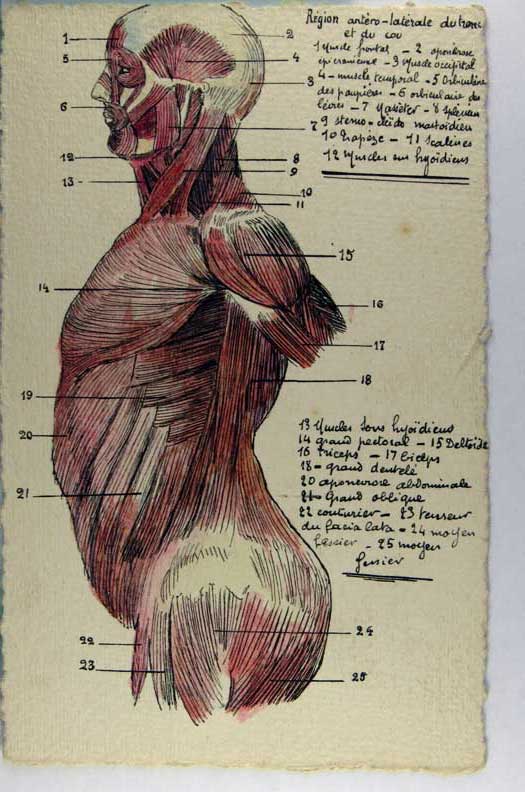 Région antéro-latérale du tronc
et du cou
1 Muscle frontal - 2 aponévrose
épicranienne - 3 muscle occipital
4 - muscle temporal - 5 Orbiculaire
des paupières - 6 orbiculaire des
lèvres - 7 Masséter - 8 splénius
9 sterno-cleido mastoïdien
10 Trapèze - 11 Scalènes
12 Muscles sus hyoïdiens
1
2
5
4
3
6
7
12
8
9
13
10
11
15
14
16
17
18
19
20
21
13 Muscles sous hyoïdiens
14 grand pectoral - 15 Deltoïde
16 triceps - 17 biceps
18 - grand dentelé
20 aponevrose abdominale
21 - Grand oblique
22 couturier - 23 tenseur
du facia lata - 24 moyen
fessier - 25 moyen
fessier
22
24
23
25